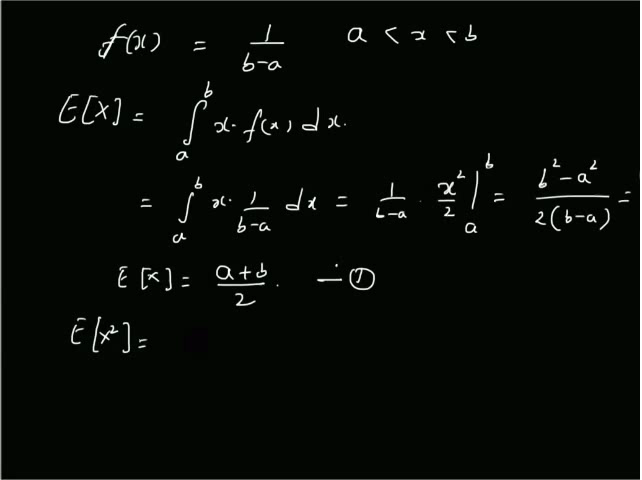 f(x) = 1/(b-a) a < x < b
E[X] = ∫_a^b x. f(x) dx.
= ∫_a^b x. 1/(b-a) dx = 1/(b-a) . x²/2 |_a^b = (b²-a²)/(2(b-a)) =
E[x] = (a+b)/2 . — ①
E[x²] =